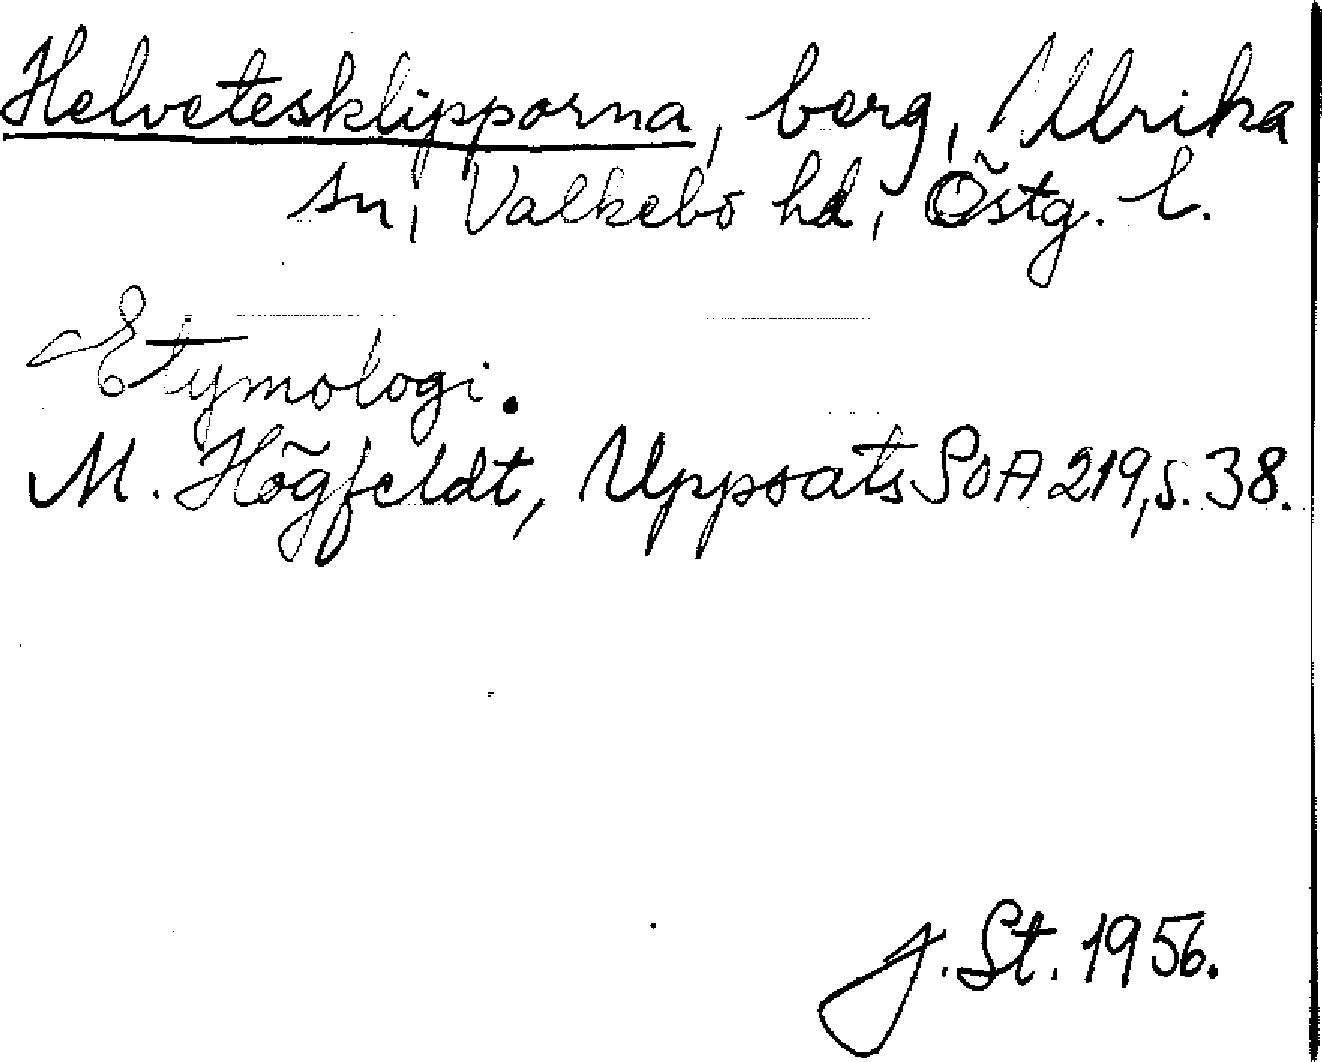 Helvetesklipporna, berg, Ulrika
sn, Valkebo hd, Östg. l.
Etymologi.
M. Högfeldt, Uppsats SOA 219, s. 38.
J. St. 1956.